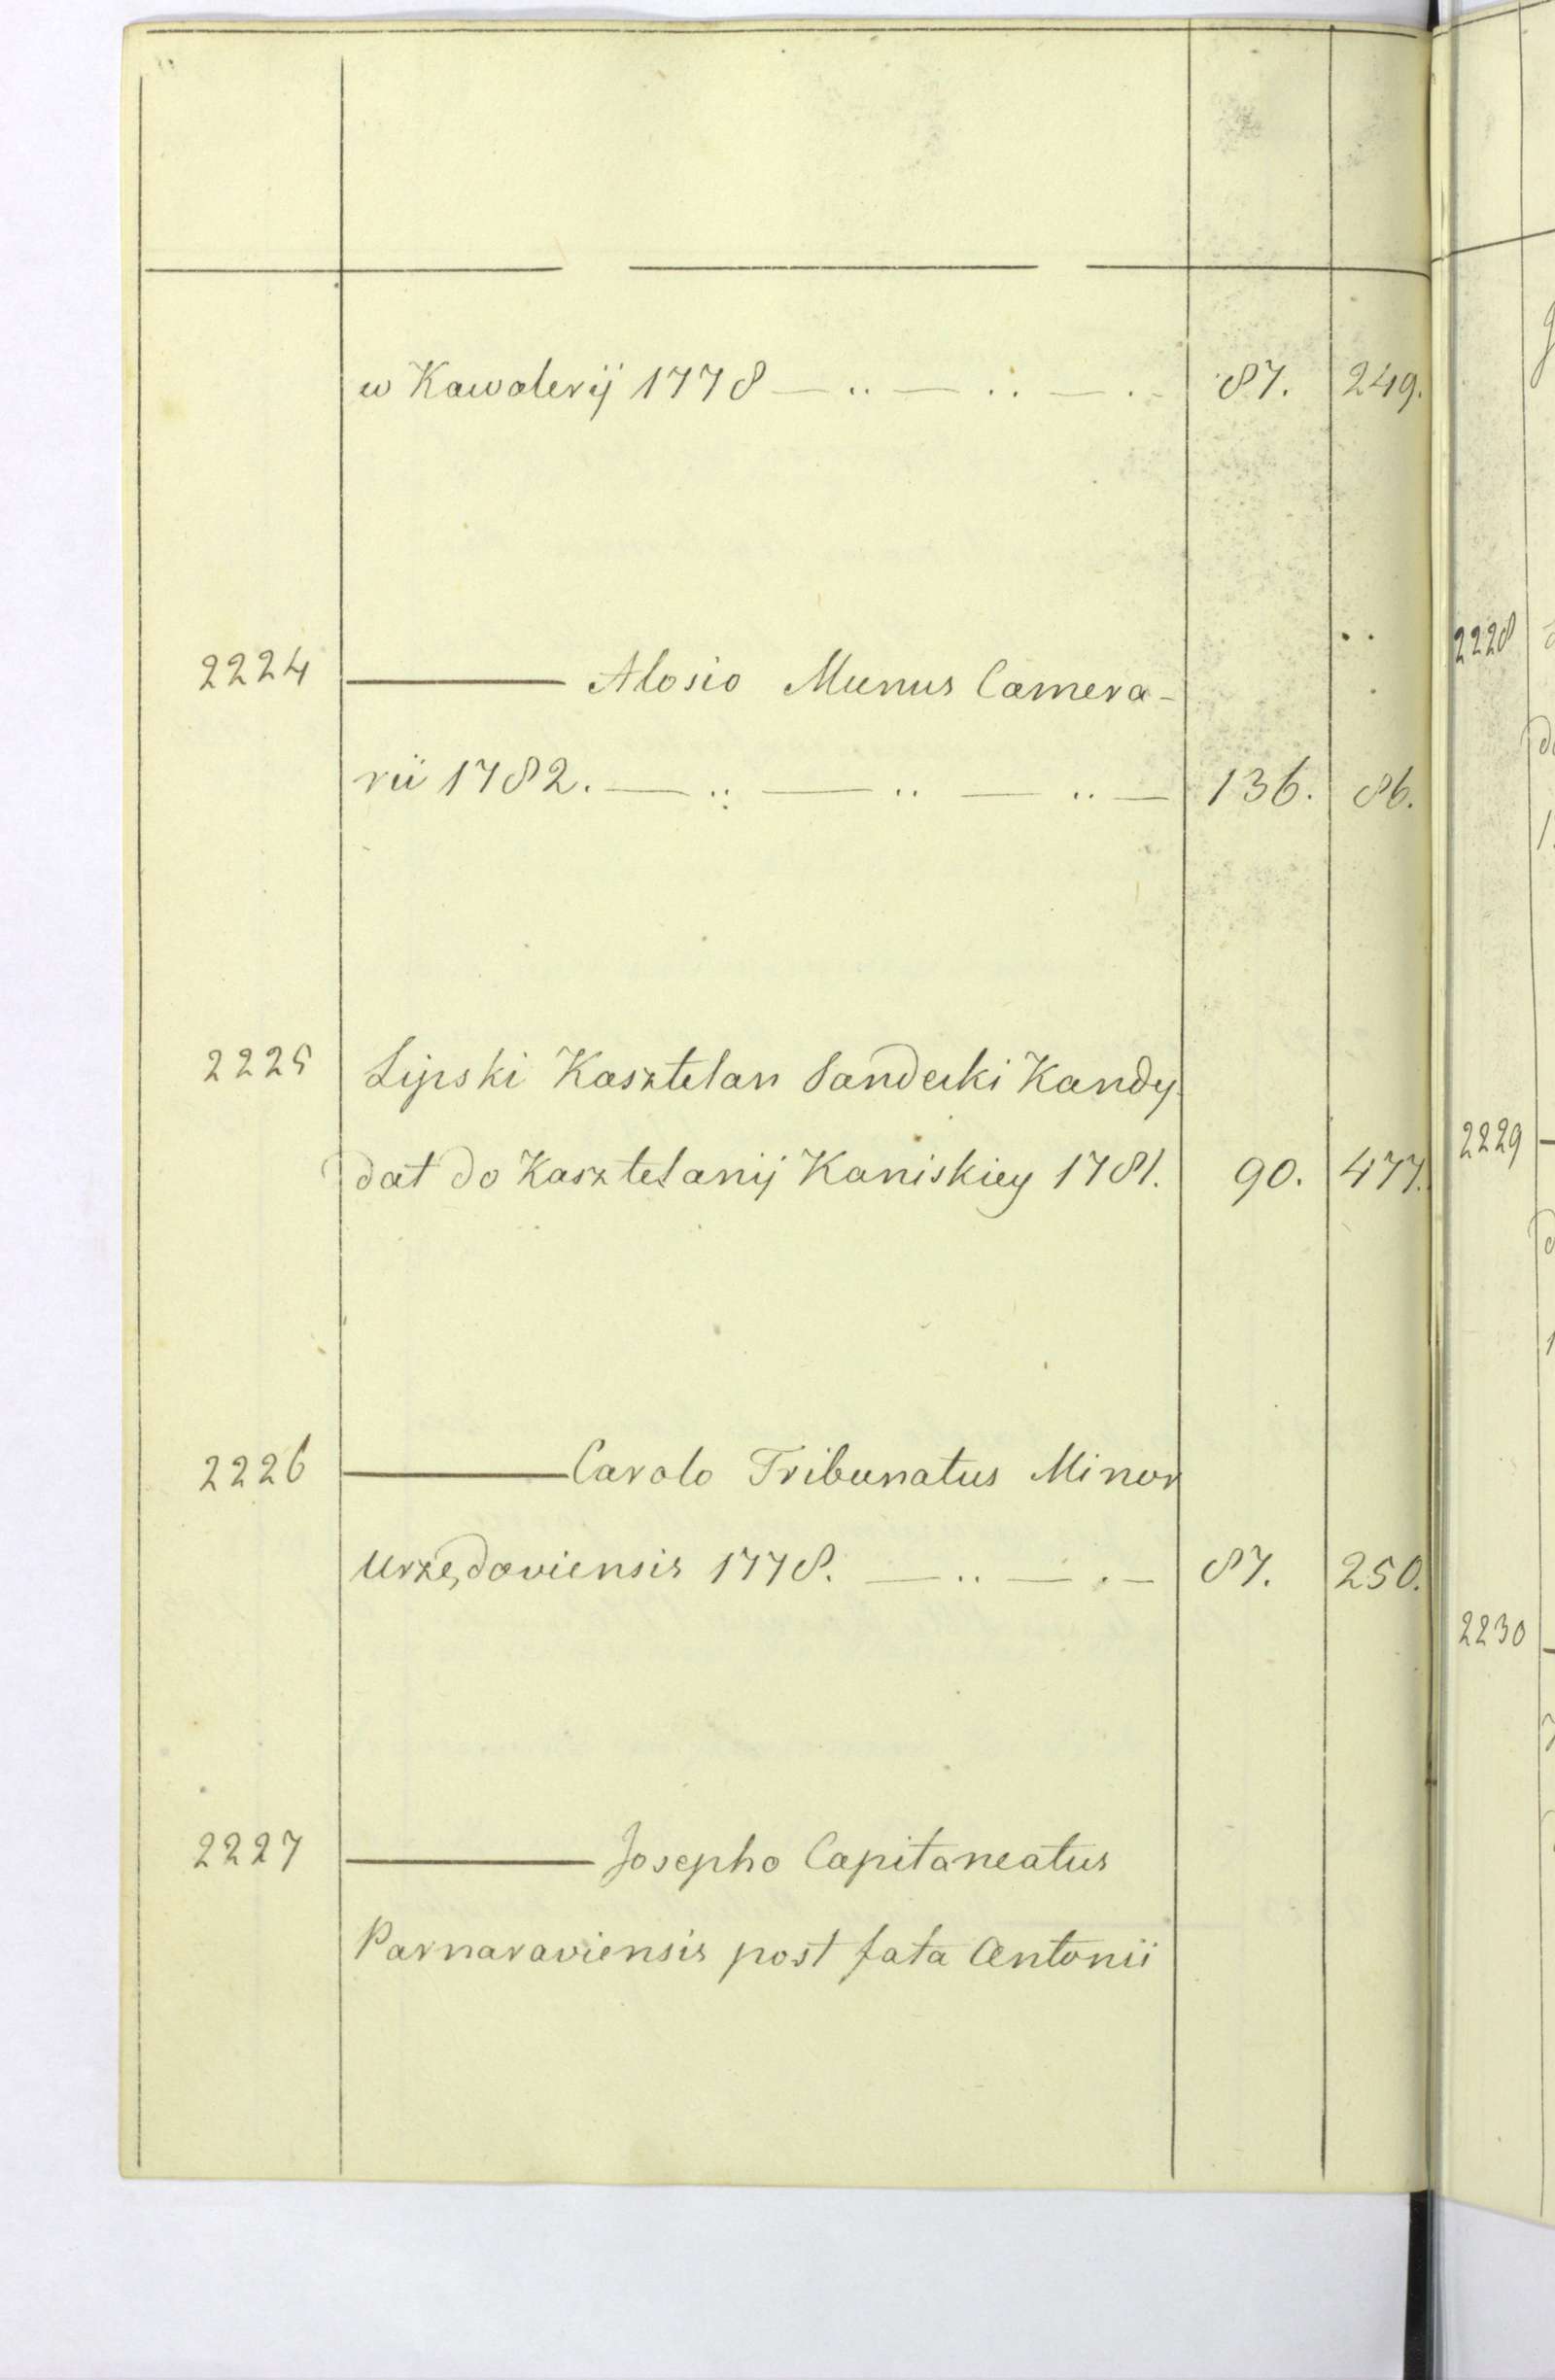 w Kawaleryij 1778 — .. — .. — . - 87. 249.
2224 ——— Alosio Munus Camera-
rii 1782. — .. — .. — .. — 136. 86.
2225 Lipski Kasztelan Sandecki Kandy
dat do Kasztelanij Kaniskiey 1781. 90. 477.
2226 ——— Carolo Tribunatus Minor
Urzędoviensis 1778. — .. — . — 87. 250.
2227 ——— Josepho Capitaneatus
Parnaraviensis post fata Antonii
2228
2229
2230